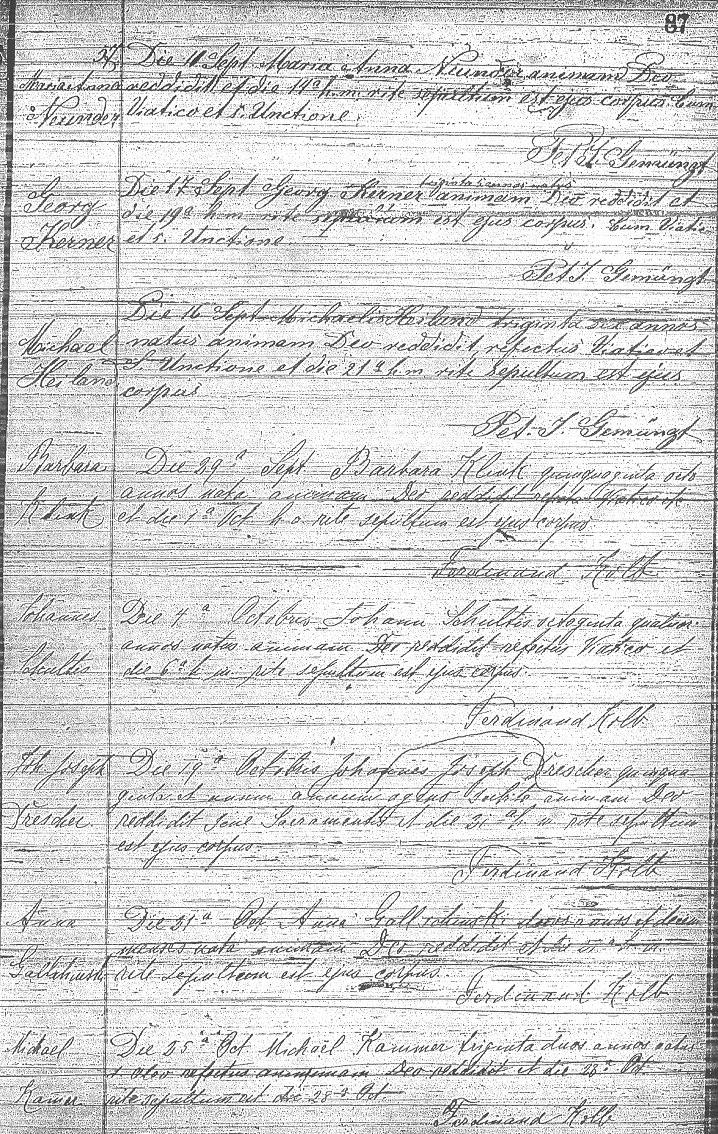 87
37 Die 11 Sept Maria Anna Neunder animam Deo
Maria Anna reddidit et die 14ª h.m. rite sepultum est ejus corpus. Cum
Neunder Viatico et s. Unctione.
Pet. J. Gemüngt
Die 17 Sept Georg Kerner triginta annos natus animam Deo reddidit et
Georg die 19ª h.m. rite sepultum est ejus corpus. Cum Viatico
Kerner et s. Unctione.
Pet. J. Gemüngt
Die 16 Sept Michaelis Heiland triginta sex annos
Michael natus animam Deo reddidit, refectus Viatico et
Heiland S. Unctione et die 21ª h.m. rite sepultum est ejus
corpus
Pet. J. Gemüngt
Barbara Die 29ª Sept Barbara Klink quinquaginta octo
annos nata animam Deo reddidit Viatico
Klink et die 1ª Oct h.a. rite sepultum est ejus corpus.
Ferdinand Kolb
Johannes Die 4ª Octobris Johann Schultis octoginta quatuor
annos natus animam Deo reddidit refectus Viatico et
Schultis die 6ª h.m. rite sepultum est ejus corpus.
Ferdinand Kolb
Joh. Joseph Die 19ª Octobris Johannes Joseph Drescher quinqua
ginta et unum annum agens subite animam Deo
Drescher reddidit sine Sacramentis et die 21ª h.m. rite sepultum
est ejus corpus.
Ferdinand Kolb
Anna Die 21ª Oct Anna duos annos et decem
menses nata animam Deo reddidit et die h.m.
rite sepultum est ejus corpus.
Ferdinand Kolb
Michael Die 25ª Oct Michael Kammer triginta duos annos natus
refectus animam Deo reddidit et die 28ª Oct
Kamer rite sepultum est die 28ª Oct.
Ferdinand Kolb